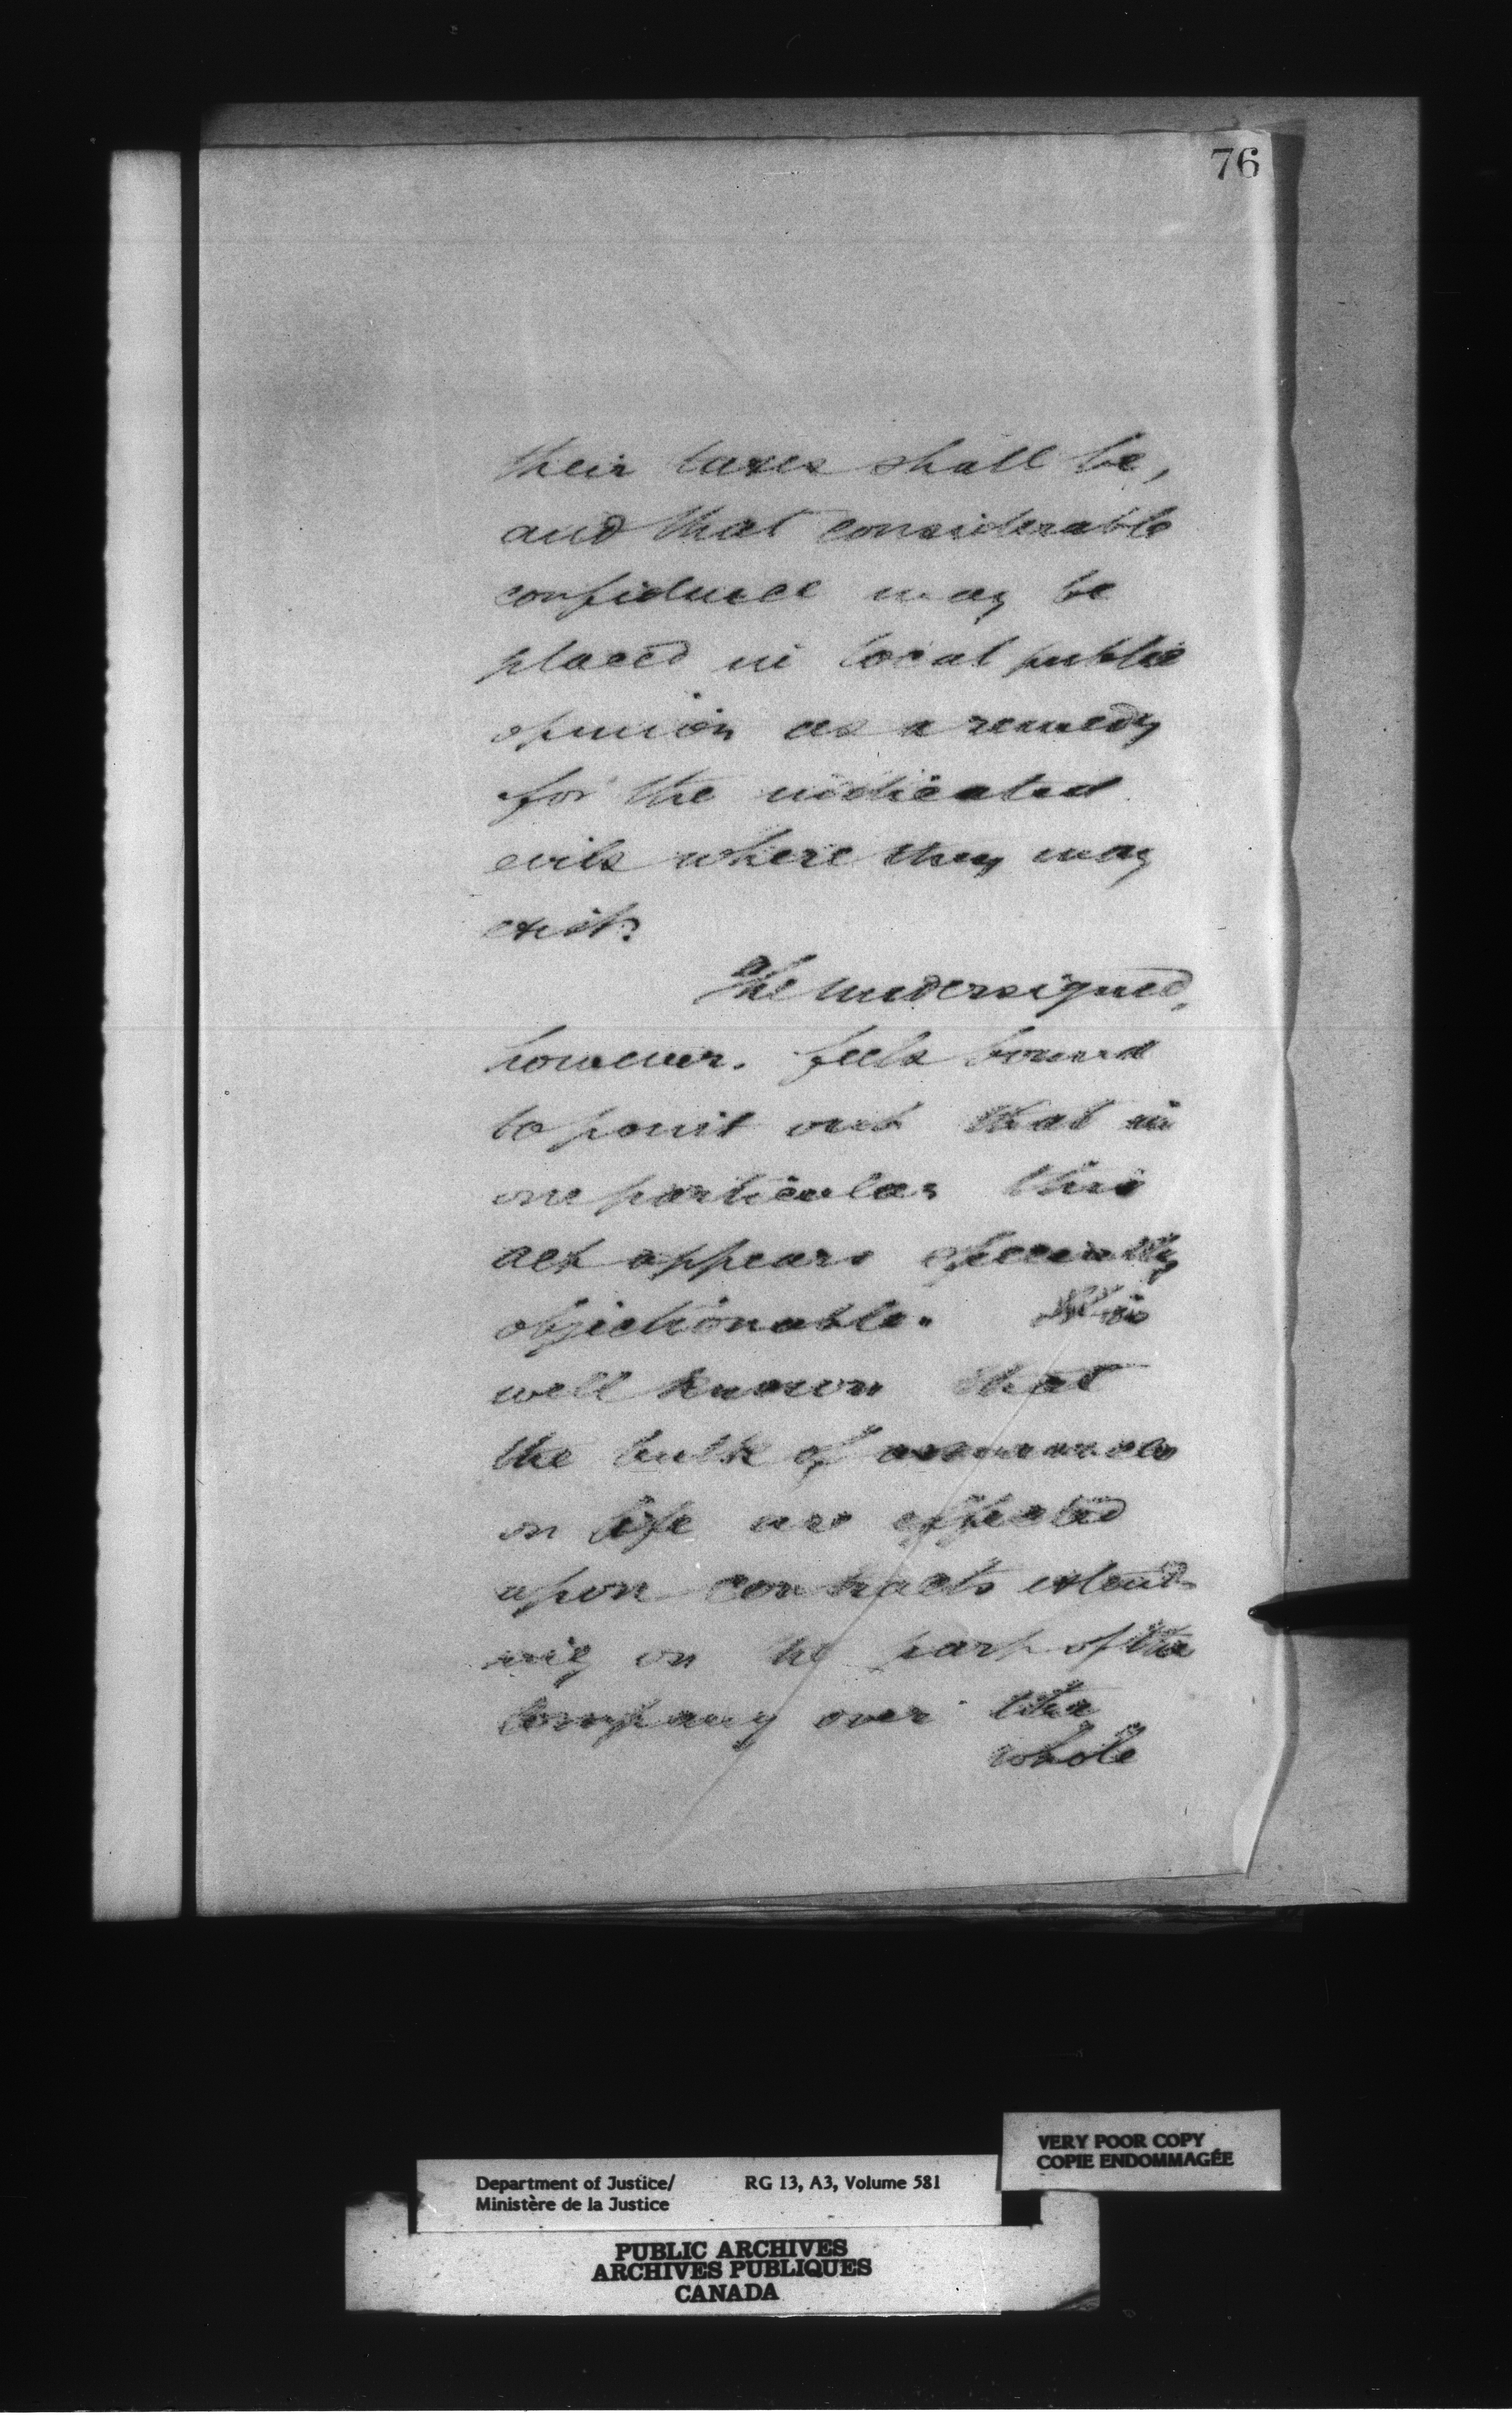 76
their taxes shall be,
and that considerable
confidence may be
placed in local public
opinion as a remedy
for the indicated
evils where they may
exist.
The undersigned,
however, feels bound
to point out that in
one particular this
act appears especially
objectionable. It is
well known that
the bulk of assurances
on life are effected
upon contracts extend-
ing on the part of the
Company over the
whole
VERY POOR COPY
COPIE ENDOMMAGÉE
Department of Justice/ RG 13, A3, Volume 581
Ministère de la Justice
PUBLIC ARCHIVES
ARCHIVES PUBLIQUES
CANADA